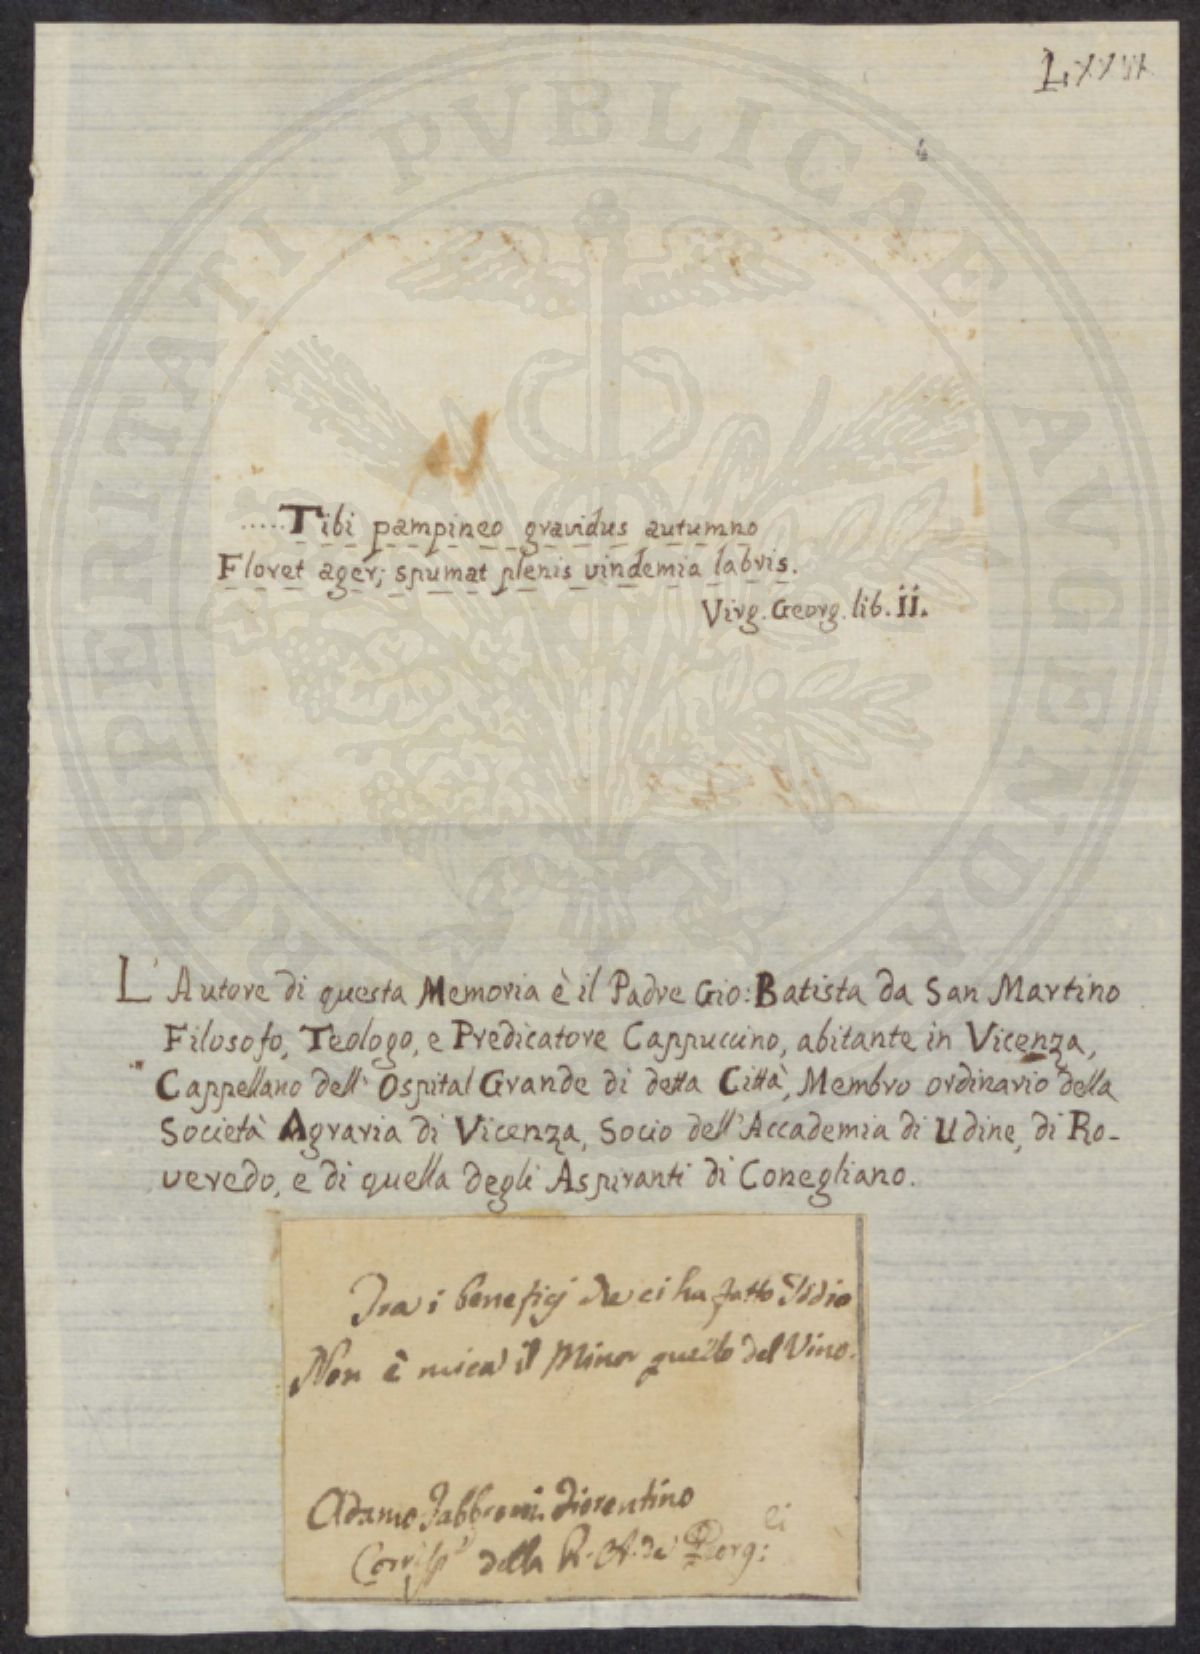 LXXIX
4
.....Tibi pampineo gravidus autumno
Floret ager; spumat plenis vindemia labris.
Virg. Georg. lib. ii.
L'Autore di questa Memoria è il Padre Gio: Batista da San Martino
Filosofo, Teologo, e Predicatore Cappuccino, abitante in Vicenza,
Cappellano dell' Ospital Grande di detta Città, Membro ordinario della
Società Agraria di Vicenza, Socio dell'Accademia di Udine, di Ro-
veredo, e di quella degli Aspiranti di Conegliano.
Fra i beneficj che ci ha fatto Iddio
Non è mica il Minor quello del Vino.
Adamo Fabbroni Fiorentino
Corrisp.e della R. A. de' Georg:
ci
PROSPERITATI PVBLICAE AVGENDAE